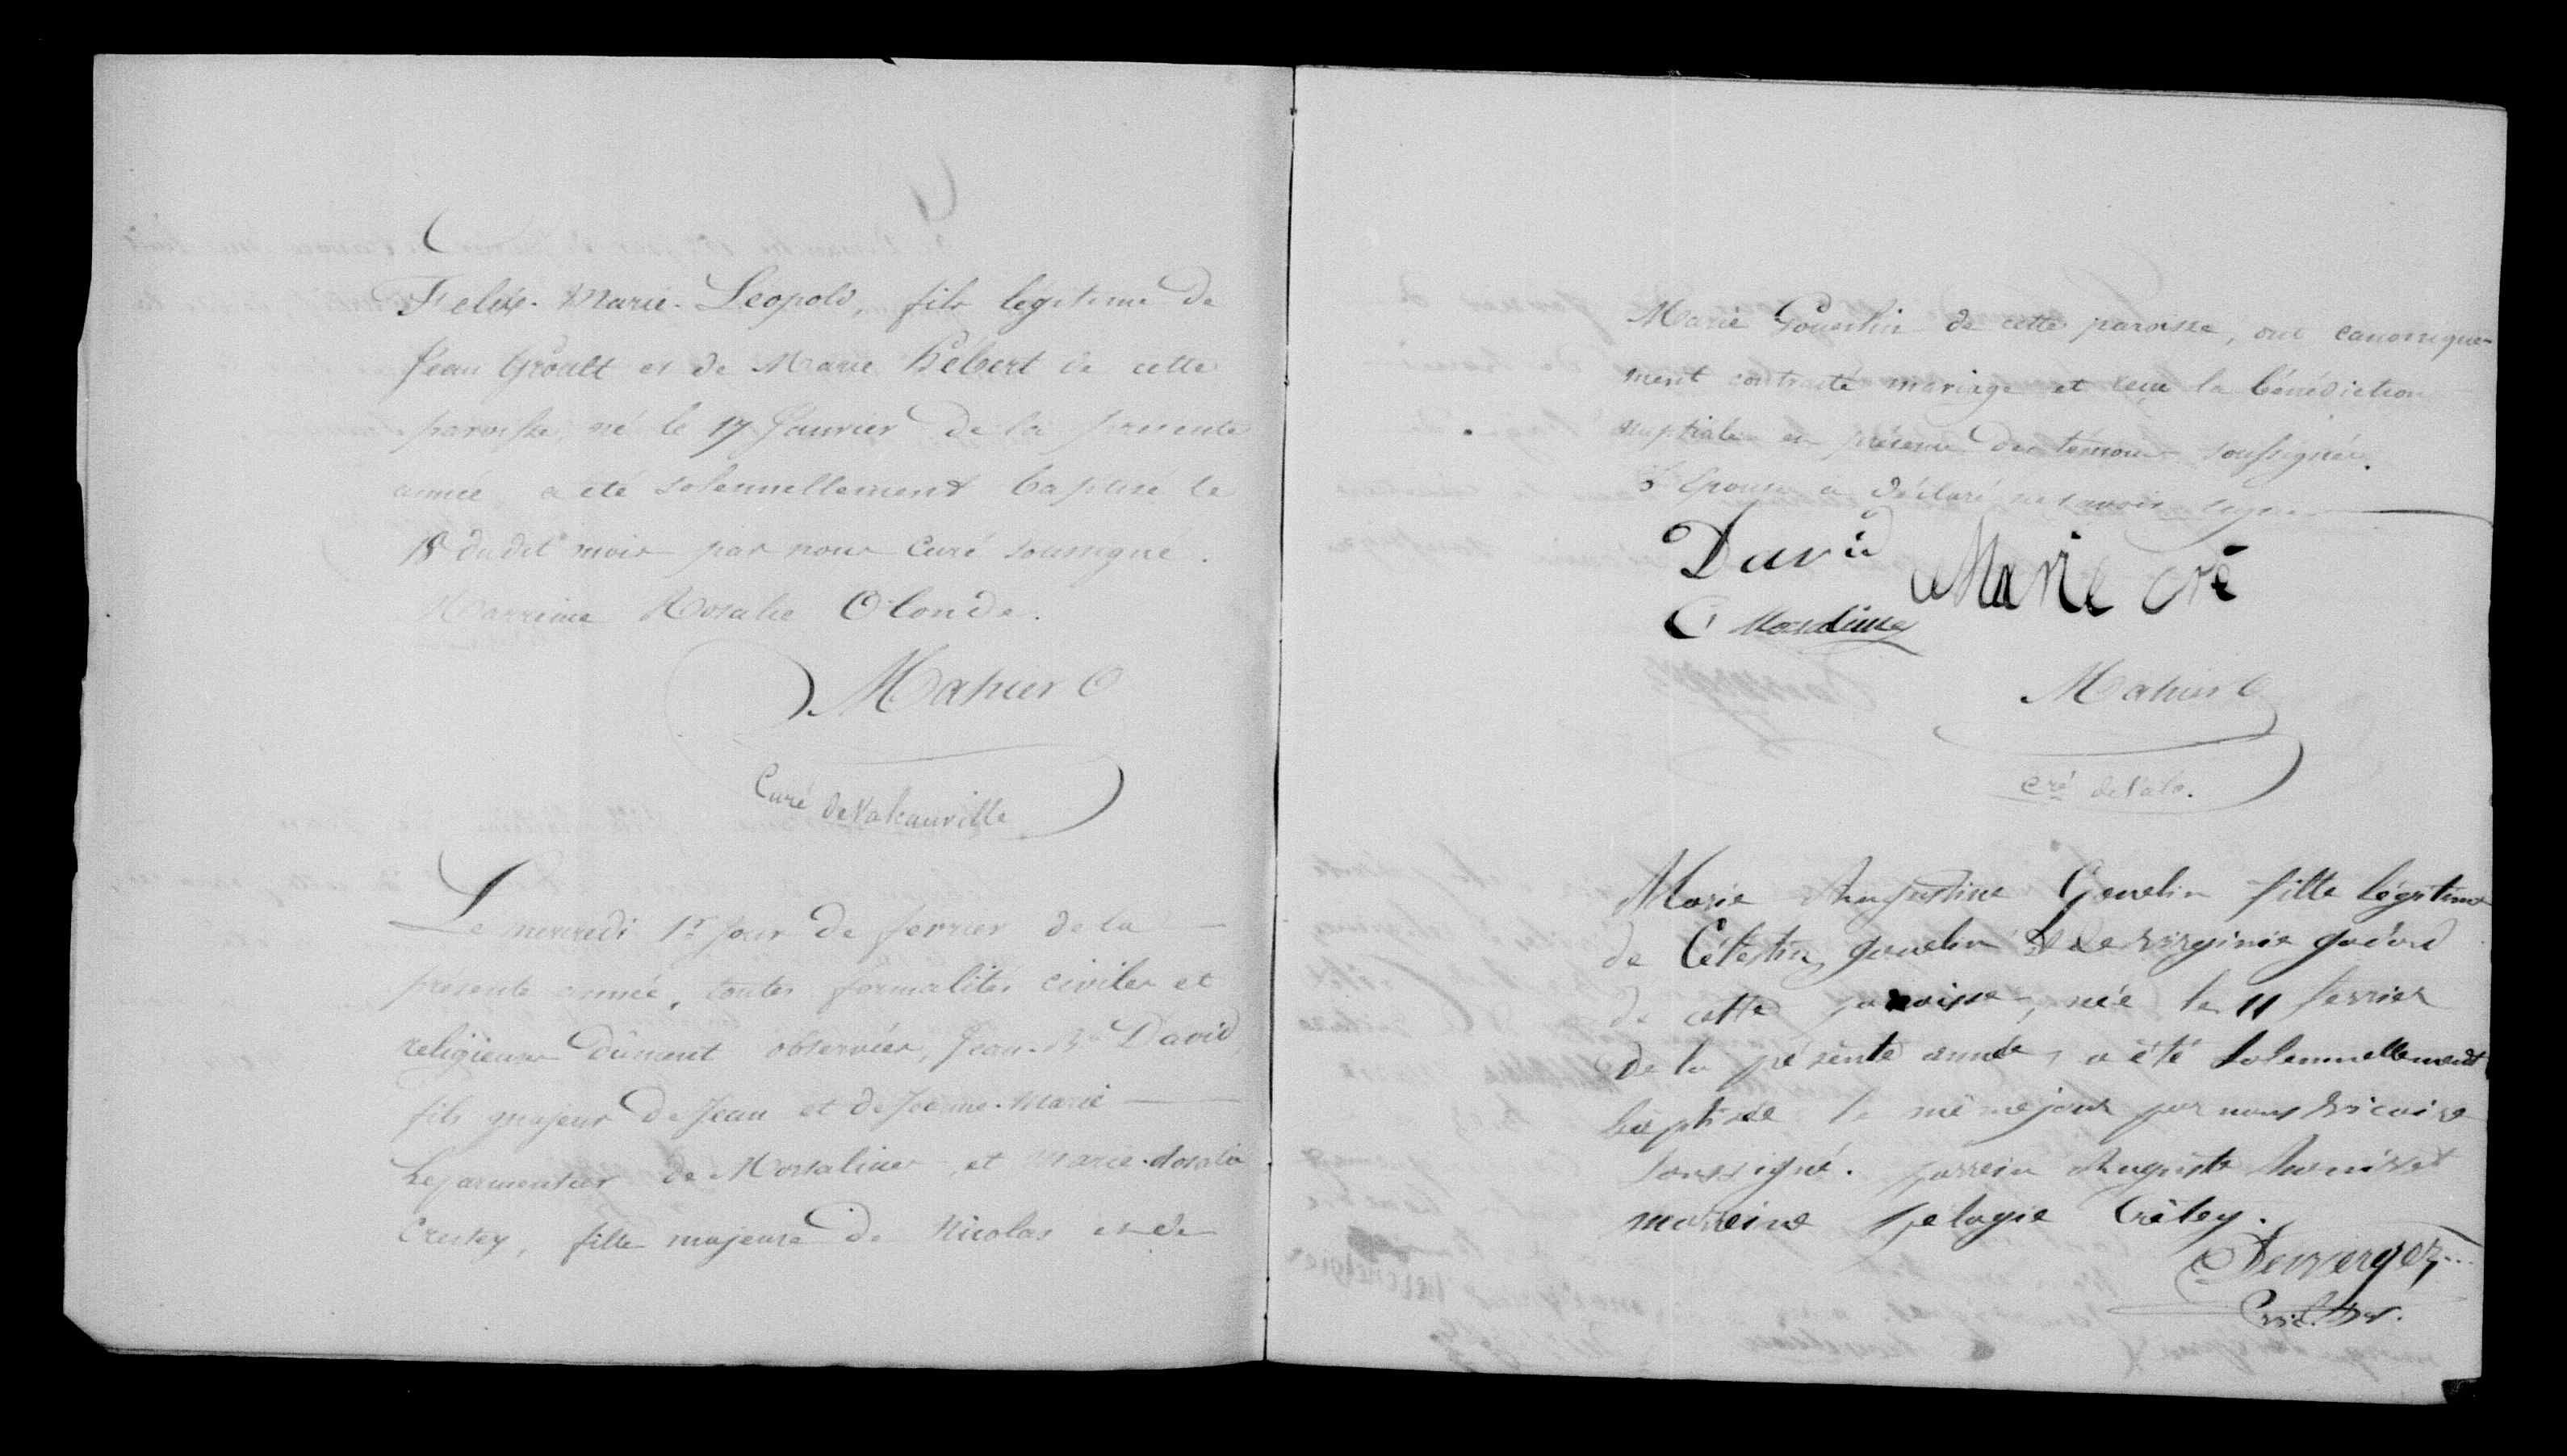 Felix-Marie-Leopold, fils legitime de
Jean Groult et de Marie Hébert de cette
paroisse, né le 17 Janvier de la présente
année, a été solennellement baptisé le
18 dudit mois par nous Curé soussigné.
Marraine Rosalie Olonde.
Mahier
Curé de
Le mercredi 1r jour de fevrier de la
presente année, toutes formalités civiles et
religieuses dûment observées, Jean-Bte David,
fils majeur de Jean et de Jeanne-Marie
Leparmentier de Morsalines, et Marie-Rosalie
Crestey, fille majeure de Nicolas et de
Marie Gouelin de cette paroisse, ont canonique-
ment contracté mariage et reçu la bénédiction
nuptiale en présence des temoins soussignés.
L'épouse a déclaré ne savoir signer
David Marie
Mahier
cré de
Marie Augustine Gouelin fille légitime
de Célestin gouelin & de virginie
de cette paroisse, née le 11 fevrier
de la présente année, a été solennellement
baptisée le même jour par nous vicaire
soussigné. parrein Auguste
mareine pelagie Crétey.